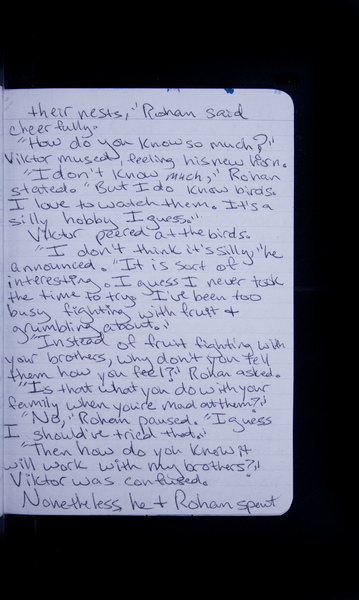 their nests," Rohan said
cheerfully.
"How do you know so much?"
Viktor mused, feeling his new horn.
"I don't know much," Rohan
stated. "But I do know birds.
I love to watch them. It's a
silly hobby I guess."
Viktor peered at the birds.
"I don't think it's silly," he
announced. "It is sort of
interesting. I guess I never took
the time to try. I've been too
busy fighting with fruit +
grumbling about."
"Instead of fruit fighting with
your brothers, why don't you tell
them how you feel?" Rohan asked.
"Is that what you do with your
family when you're mad at them?"
"No," Rohan paused. "I guess
I should've tried that."
"Then how do you know it
will work with my brothers?"
Viktor was confused.
Nonetheless, he + Rohan spent